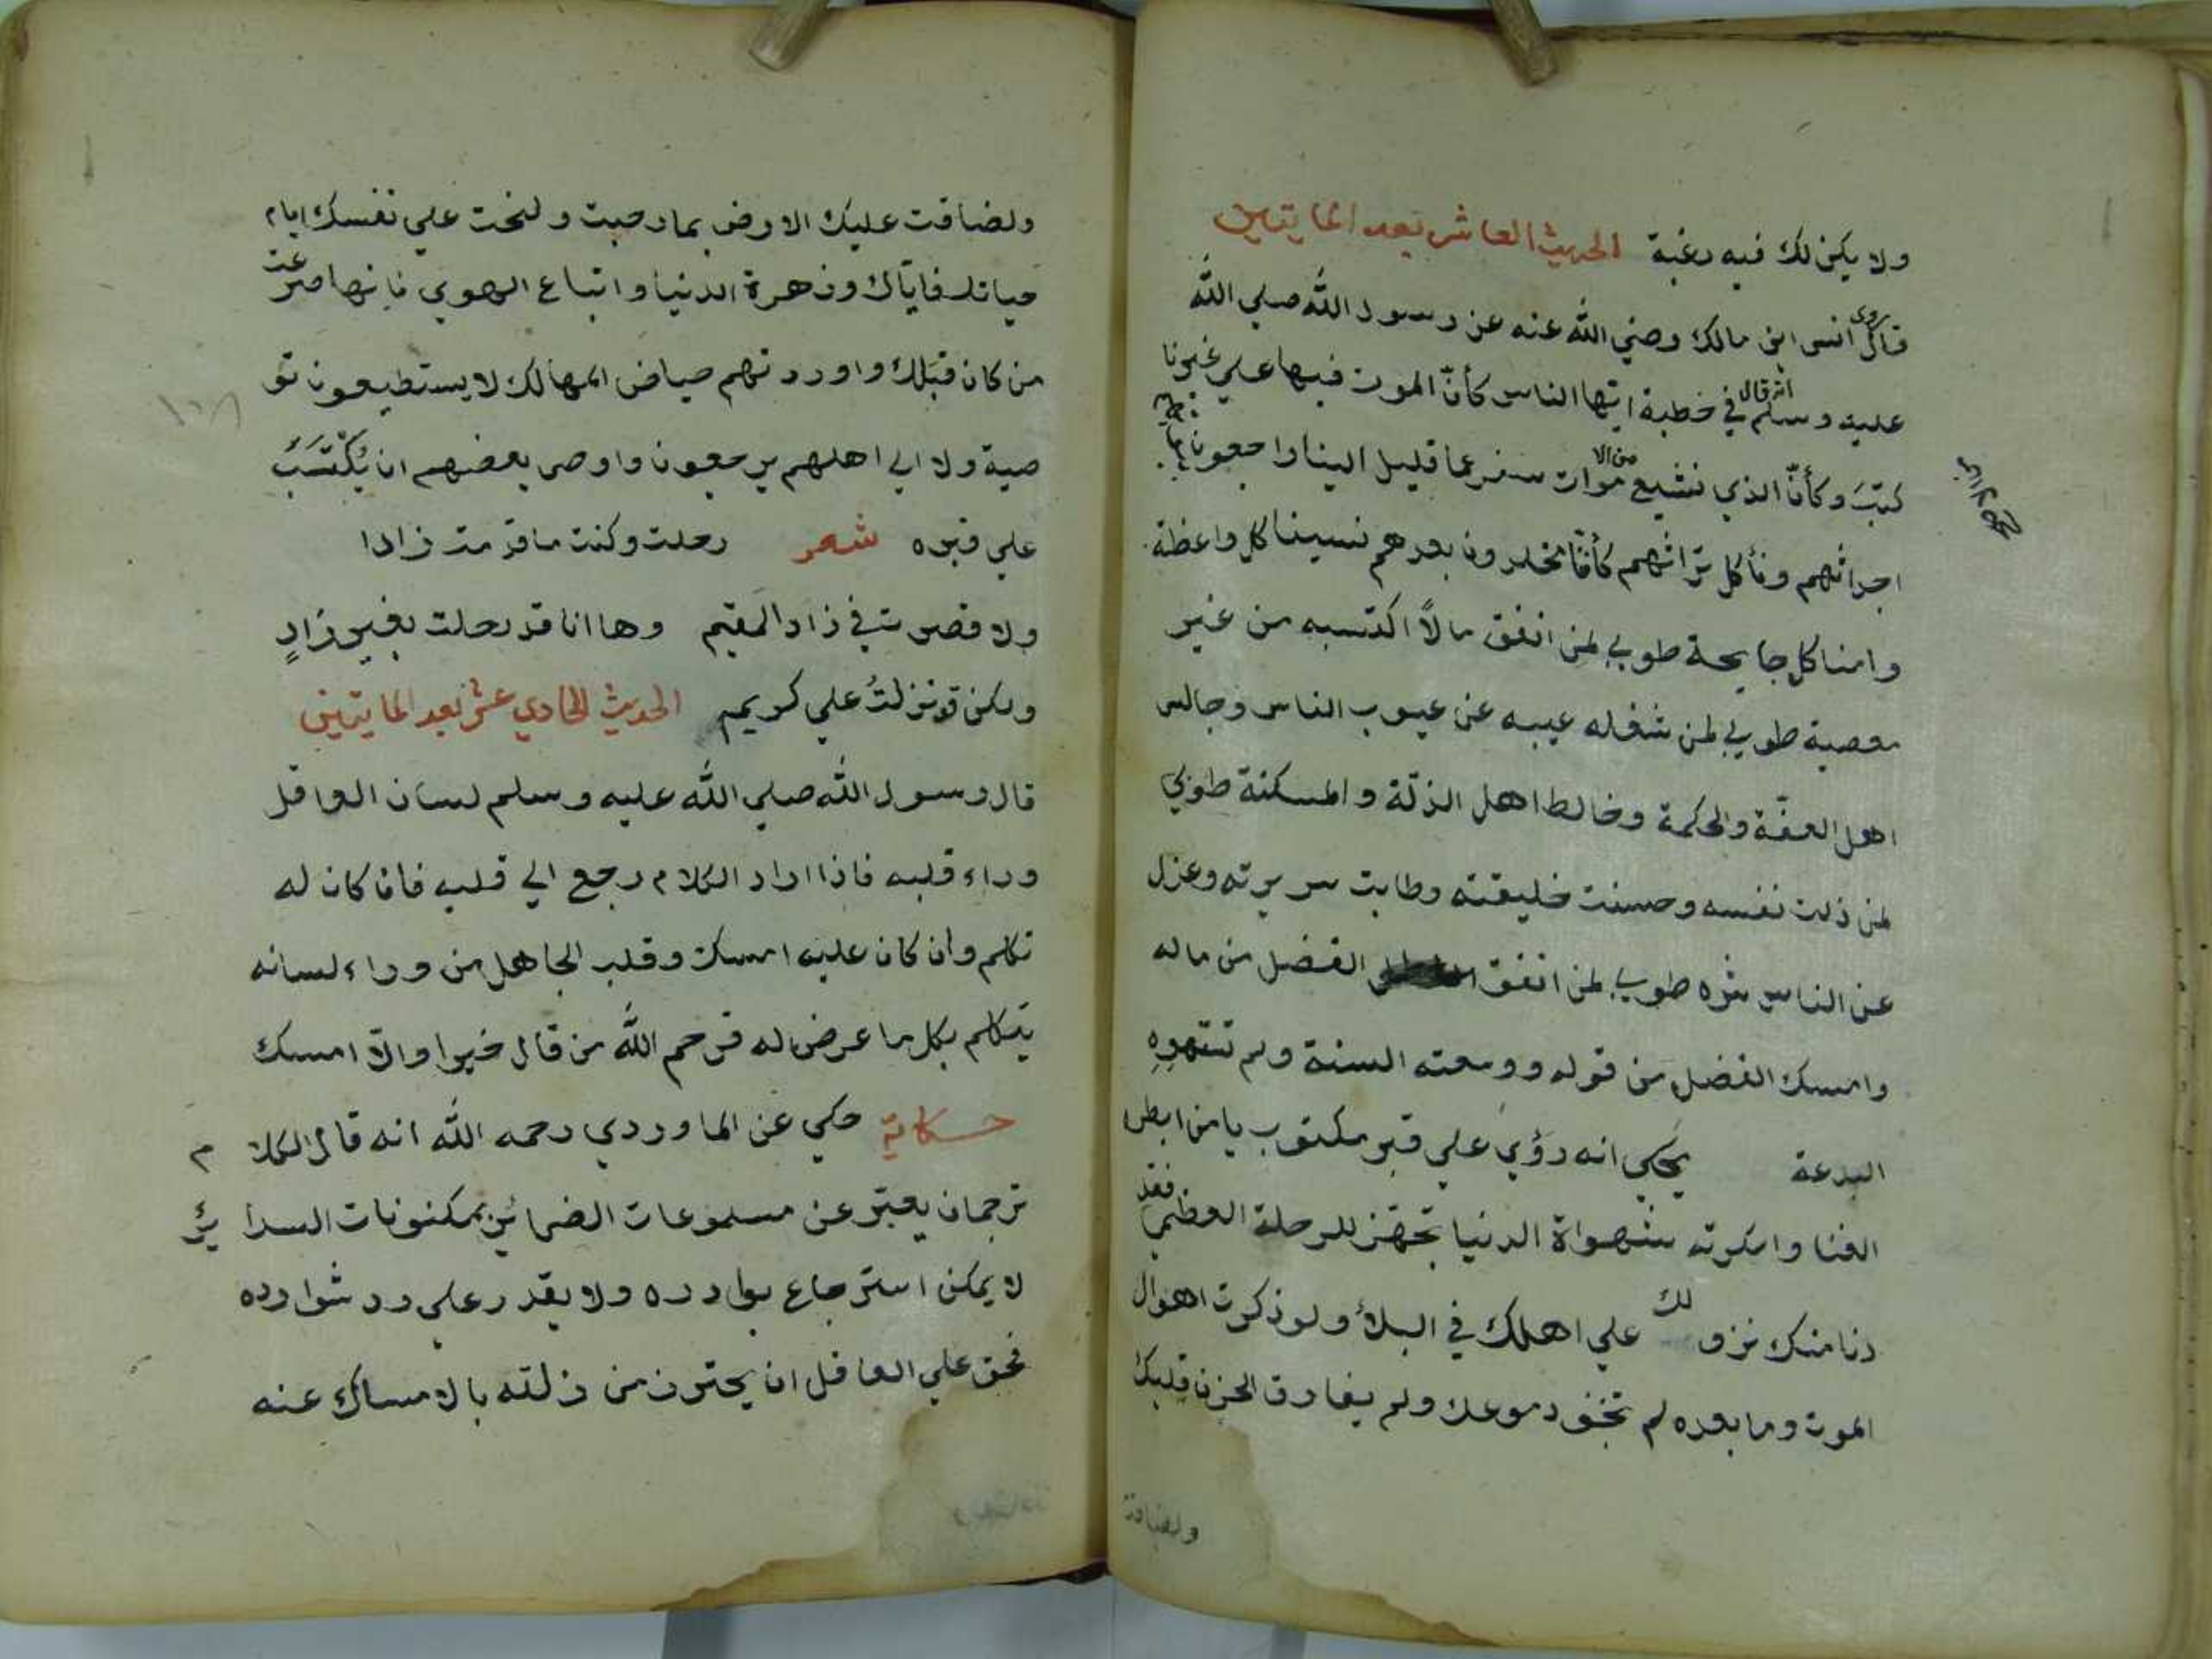 ولا يكن لك فيه رغبة الحديث العاشر بعد المايتين
روى
قال انس ابن مالك رضي الله عنه عن رسول الله صلي الله
عليه وسلم انه قال في خطبة ايها الناس كأنّ الموت فيها علي غيرنا
كتبَ وكأنّ الذي نشيع من الاموات سفر عما قليل الينا راجعون
اجداثهم ونأكل تراثهم كأنّا مخلدون بعدهم نسينا كل واعظة
وامنا كل جايحة طوبي لمن انفق مالًا اكتسبه من غير
معصية طوبي لمن شغله عيبه عن عيوب الناس وجالس
اهل العفّة والحكمة وخالط اهل الذلّة والمسكنة طوبي
لمن ذلت نفسه وحسنت خليقته وطابت سريرته وعزل
عن الناس شره طوبي لمن انفق الفضل من ماله
وامسك الفضل من قوله ووسعته السنة ولم تستهوه
البدعة يحكي انه رؤي علي قبر مكتوب يا من ابطره
الغنا واسكرته شهواة الدنيا تجهّز للرحلة العظمي فقد
دنا منك نزولك علي اهلك في البلاء ولو ذكرت اهوال
الموت وما بعده لم تجف دموعك ولم يفارق الحزن قلبك
ولضاقت
ولضاقت عليك الارض بما رحبت ولنحت علي نفسك ايام
حياتك فاياك وزهرة الدنيا واتباع الهوي فانها صرعت
من كان قبلك واوردتهم حياض المهالك لا يستطيعون تو
صية ولا الي اهلهم يرجعون واوصي بعضهم ان يُكْتَبَ
علي قبره شعر رحلت وكنت ما قدمت زادا
ولا قصرت في زاد المقيم وها انا قد رحلت بغير زادٍ
ولكن قد نزلتُ علي كريم الحديث الحادي عشر بعد المايتين
قال رسول الله صلي الله عليه وسلم لسان العاقل
وراء قلبه فاذا اراد الكلام رجع الي قلبه فان كان له
تكلم وان كان عليه امسك وقلب الجاهل من وراء لسانه
يتكلم بكل ما عرض له فرحم الله من قال خيرا والّا امسك
حكاية حكي عن الماوردي رحمه الله انه قال الكلام
ترجمان يعبّر عن مسموعات الضمائر بمكنونات السرائر
لا يمكن استرجاع بوادره ولا يقدر علي رد شوارده
فحق علي العاقل ان يحترز من زلته بالامساك عنه